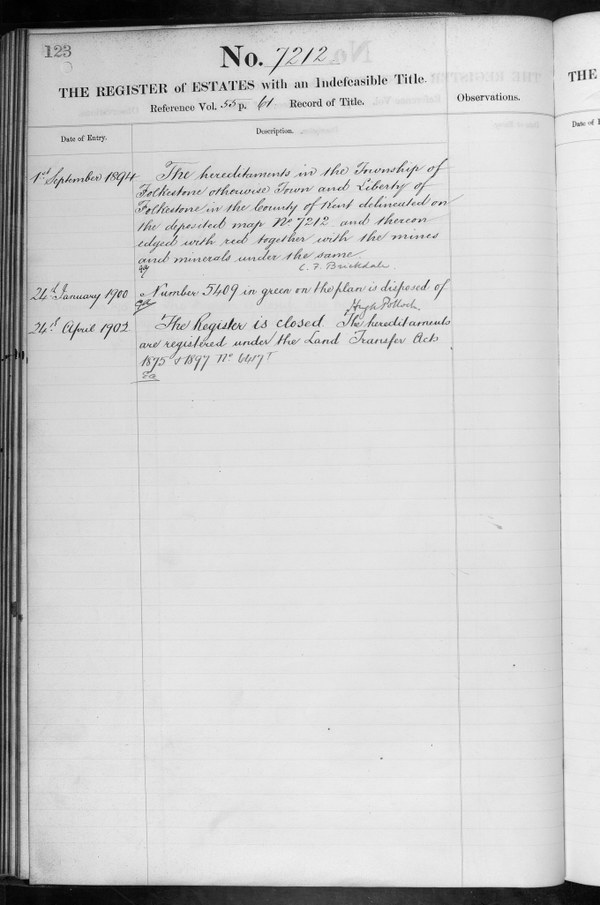 123
No. 7212
THE REGISTER of ESTATES with an Indefeasible Title.
Reference Vol. 55 p. 61 Record of Title.
Observations.
Date of Entry.
Description.
1st September 1894
The hereditaments in the Township of
Folkestone otherwise Town and Liberty of
Folkestone in the County of Kent delineated on
the deposited map No. 7212 and thereon
edged with red together with the mines
and minerals under the same
C. F. Brickdale
24th January 1900
Number 5409 in green on the plan is disposed of
Hugh Pollock
24th April 1902
The Register is closed. The hereditaments
are registered under the Land Transfer Acts
1875 & 1897 No
THE